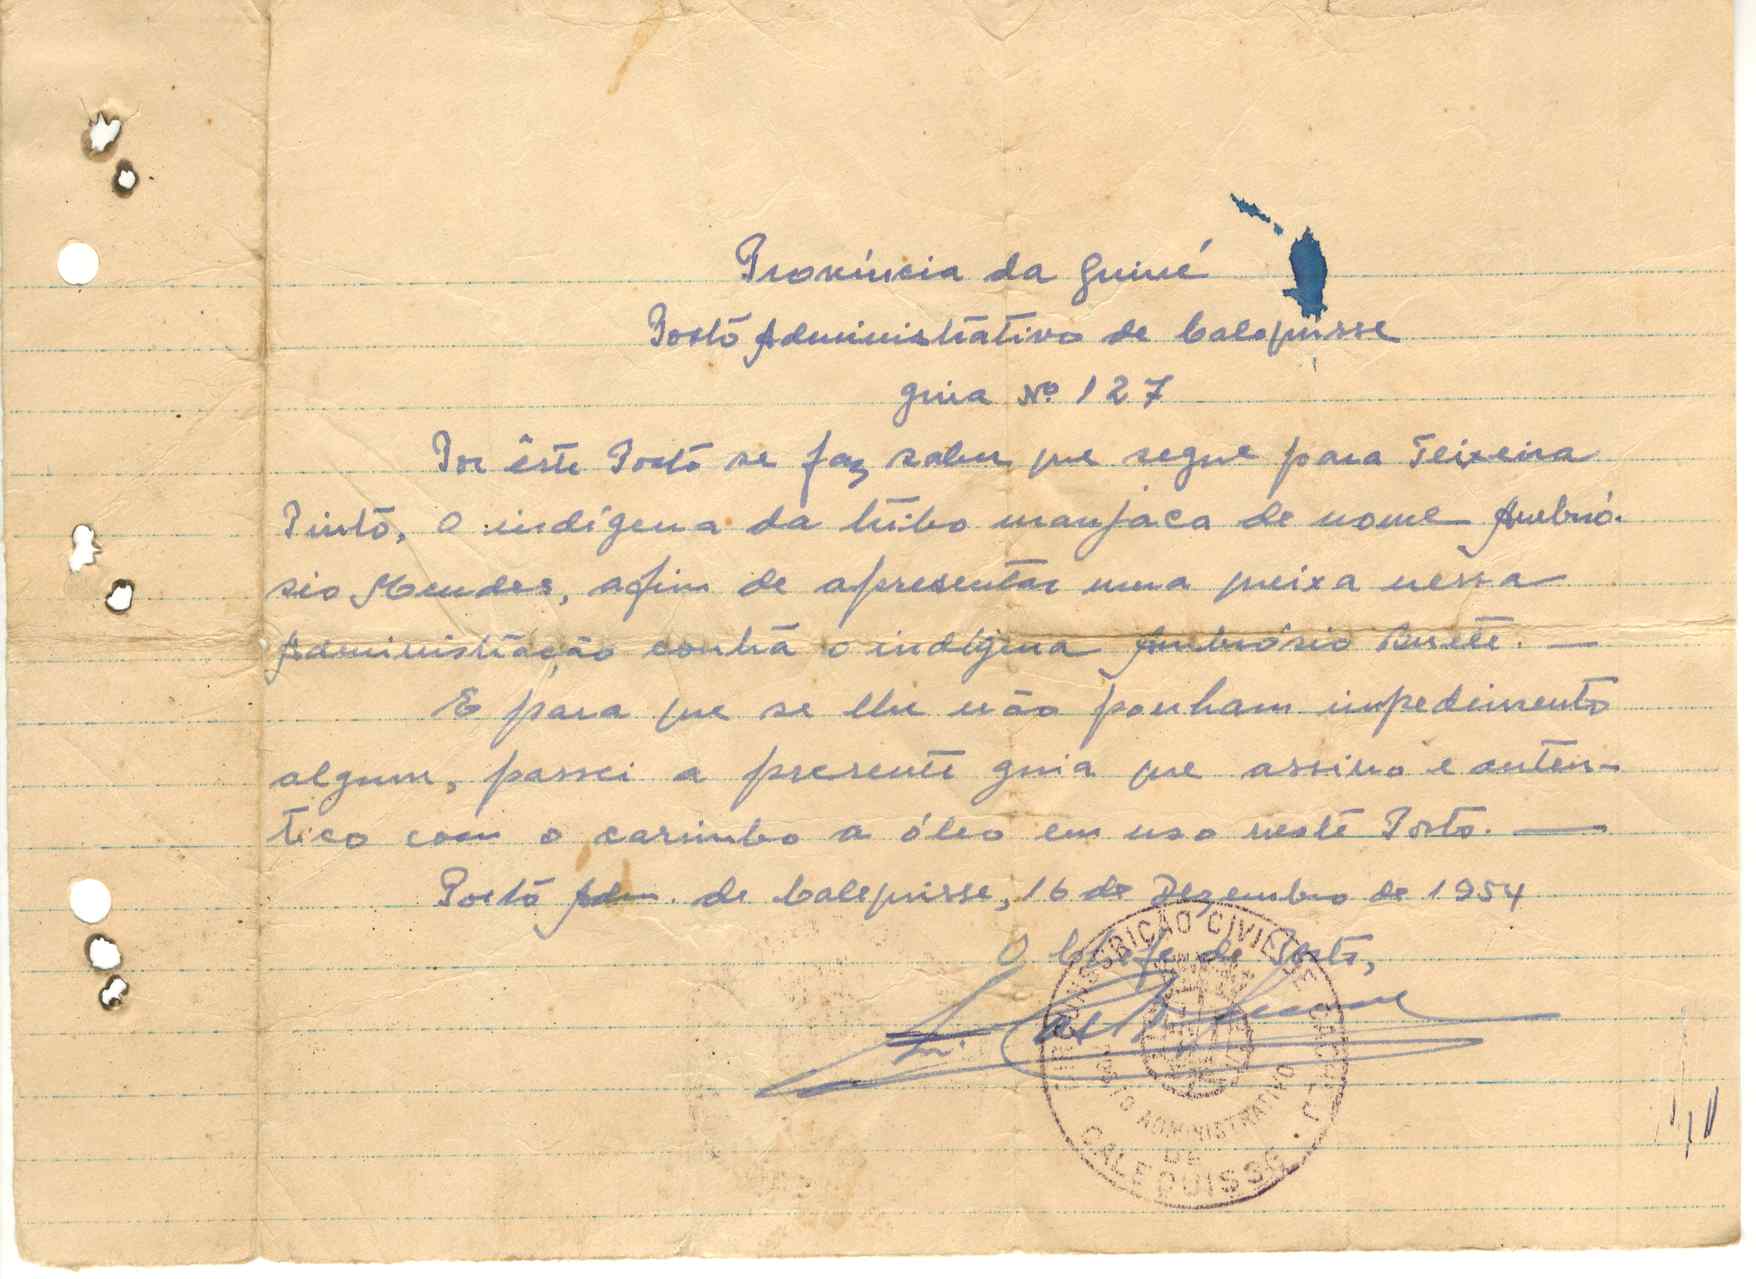 Província da Guiné
Posto Administrativo de Calequisse
Guia Nº 127
Por êste Posto se faz saber que segue para Teixeira
Pinto, o indígena da tribo manjaca de nome Ambró-
sio Mendes, afim de apresentar uma queixa nessa
Administração contra o indígena Ambrósio
E para que se lhe não ponham impedimento
algum, passei a presente guia que assino e auten-
tico com o carimbo a óleo em uso neste Posto.
Posto Adm. de Calequisse, 16 de Dezembro de 1954
O Chefe de Posto,
CIRCUNSCRIÇÃO CIVIL DE CACHEU
POSTO ADMINISTRATIVO
DE
CALEQUISSE